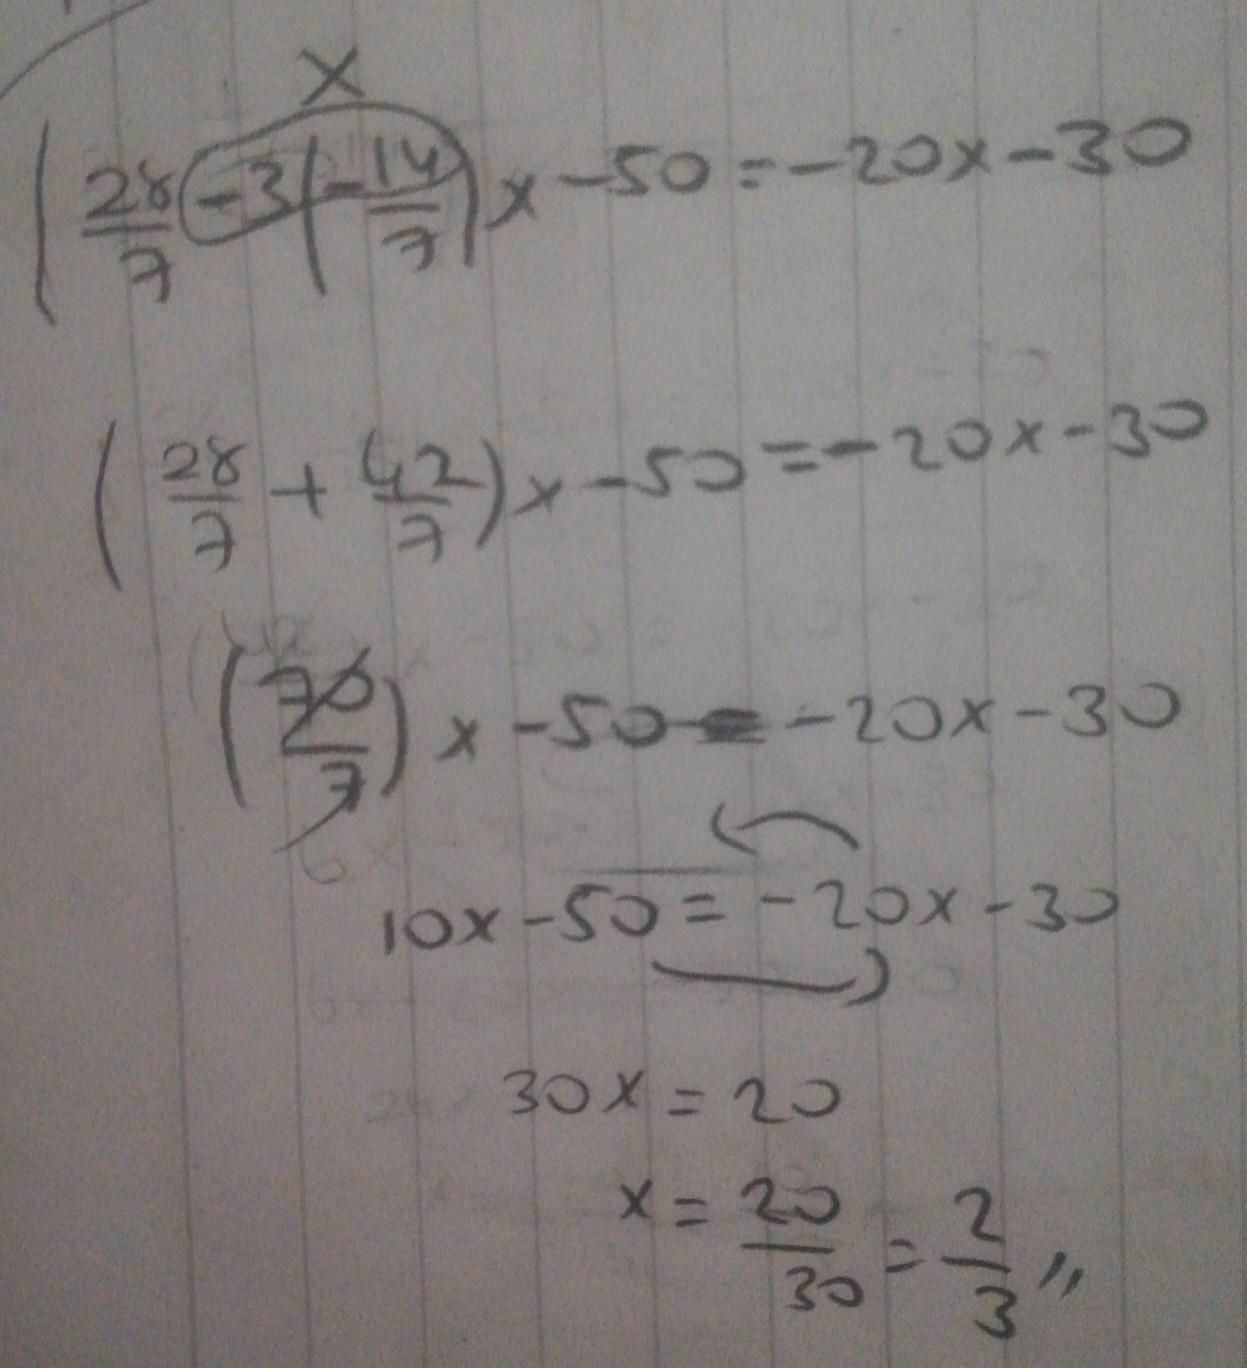 x
(28/7 -3(-14/7)x -50 = -20x -30
(28/7 + 42/7)x -50 = -20x -30
(70/7)x -50 = -20x -30
10x -50 = -20x -30
30x = 20
x = 20/30 = 2/3 //